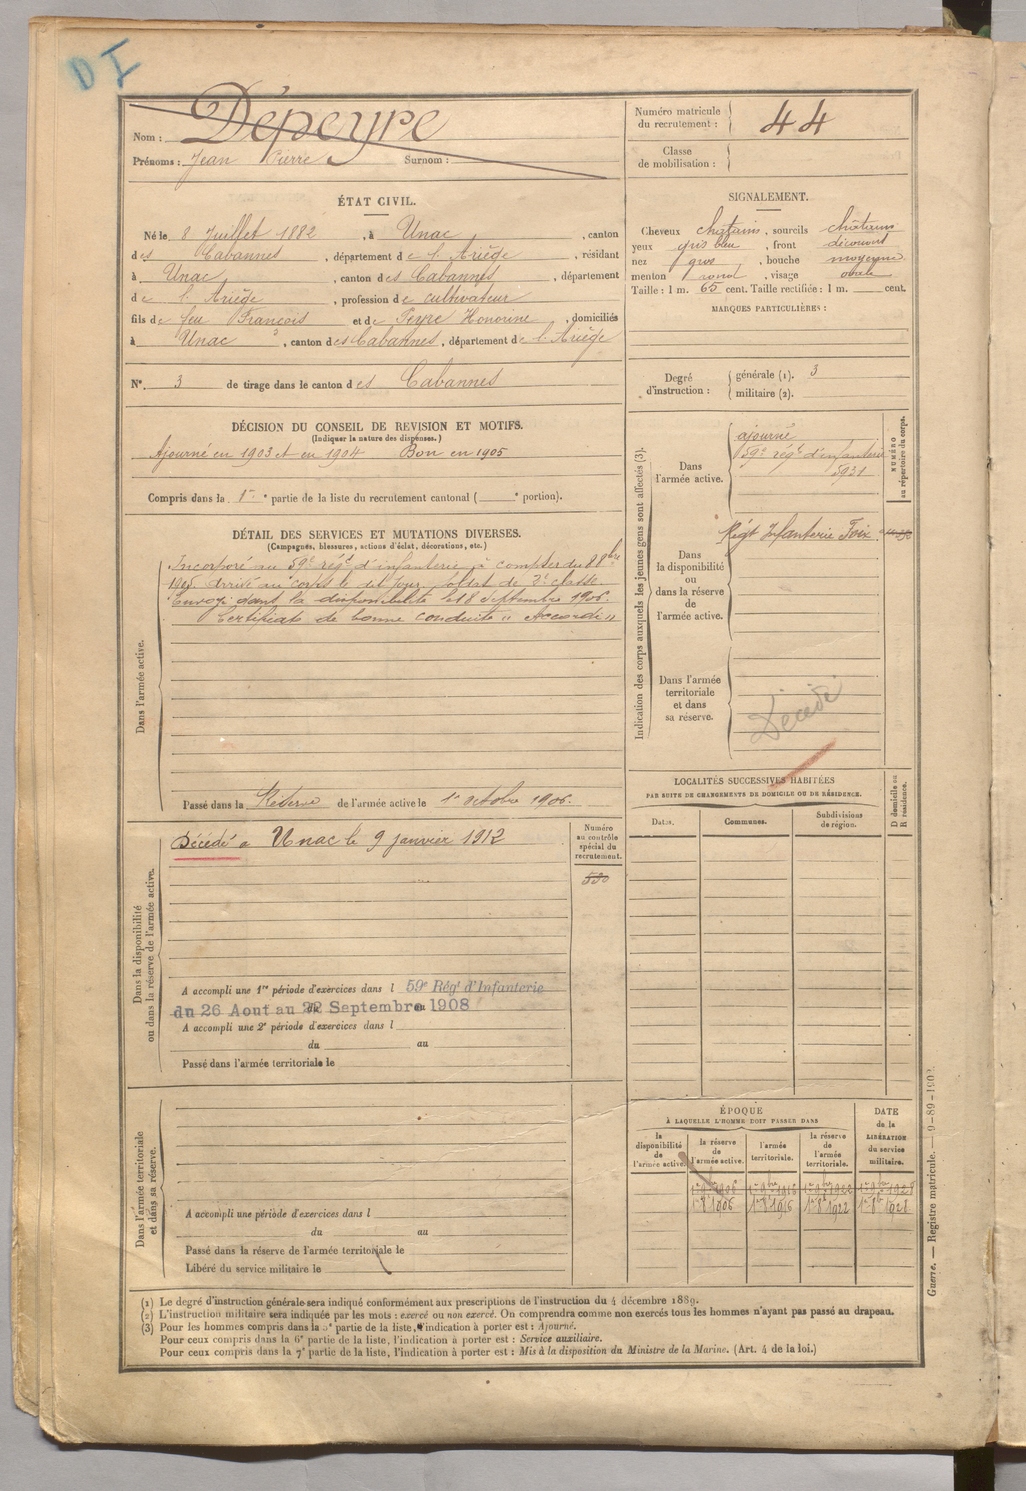 D I
Nom : Dépeyre
Prénoms : Jean Pierre Surnom :
Numéro matricule du recrutement : 44
Classe de mobilisation :
ÉTAT CIVIL.
Né le 8 Juillet 1882, à Unac, canton
des Cabannes, département de l'Ariège, résidant
à Unac, canton des Cabannes, département
de l'Ariège, profession de cultivateur
fils de feu François et de Peyre Honorine, domiciliés
à Unac, canton des Cabannes, département de l'Ariège
N° 3 de tirage dans le canton des Cabannes
SIGNALEMENT.
Cheveux châtains, sourcils châtains
yeux gris bleu, front découvert
nez gros, bouche moyenne
menton rond, visage ovale
Taille : 1 m. 65 cent. Taille rectifiée : 1 m. cent.
MARQUES PARTICULIÈRES :
Degré d'instruction : générale (1). 3
militaire (2).
DÉCISION DU CONSEIL DE REVISION ET MOTIFS.
(Indiquer la nature des dispenses.)
Ajourné en 1903 et en 1904 Bon en 1905
Compris dans la 1re partie de la liste du recrutement cantonal ( e portion).
DÉTAIL DES SERVICES ET MUTATIONS DIVERSES.
(Campagnes, blessures, actions d'éclat, décorations, etc.)
Dans l'armée active.
Incorporé au 59e régt d'infanterie à compter du 8 8bre
1905 arrivé au corps le dit jour, soldat de 2e classe
Envoyé dans la disponibilité le 18 Septembre 1906.
Certificat de bonne conduite "Accordé"
Passé dans la Réserve de l'armée active le 1er octobre 1906.
Indication des corps auxquels les jeunes gens sont affectés (3).
NUMÉRO au répertoire du corps.
Dans l'armée active.
ajourné
59e régt d'infanterie
5931
Régt Infanterie Foix
Dans la disponibilité ou dans la réserve de l'armée active.
Dans l'armée territoriale et dans sa réserve.
Décédé
LOCALITÉS SUCCESSIVES HABITÉES
PAR SUITE DE CHANGEMENTS DE DOMICILE OU DE RÉSIDENCE.
Dates. Communes. Subdivisions de région.
D domicile ou R résidence.
Dans la disponibilité ou dans la réserve de l'armée active.
Décédé à Unac le 9 janvier 1912
Numéro au contrôle spécial du recrutement.
530
A accompli une 1re période d'exercices dans l 59e Régt d'Infanterie
du 26 Aout au 22 Septembre 1908
A accompli une 2e période d'exercices dans l
du au
Passé dans l'armée territoriale le
Dans l'armée territoriale et dans sa réserve.
A accompli une période d'exercices dans l
du au
Passé dans la réserve de l'armée territoriale le
Libéré du service militaire le
ÉPOQUE
À LAQUELLE L'HOMME DOIT PASSER DANS
la disponibilité de l'armée active.
la réserve de l'armée active.
l'armée territoriale.
la réserve de l'armée territoriale.
DATE de la LIBÉRATION du service militaire.
1er 9bre 1906 1er 9bre 1916 1er 9bre 1922 1er 9bre 1928
1er 8b 1906 1er 8b 1916 1er 8b 1922 1er 8b 1928
Guerre. — Registre matricule.
(1) Le degré d'instruction générale sera indiqué conformément aux prescriptions de l'instruction du 4 décembre 1889.
(2) L'instruction militaire sera indiquée par les mots : exercé ou non exercé. On comprendra comme non exercés tous les hommes n'ayant pas passé au drapeau.
(3) Pour les hommes compris dans la 5e partie de la liste, l'indication à porter est : Ajourné.
Pour ceux compris dans la 6e partie de la liste, l'indication à porter est : Service auxiliaire.
Pour ceux compris dans la 7e partie de la liste, l'indication à porter est : Mis à la disposition du Ministre de la Marine. (Art. 4 de la loi.)